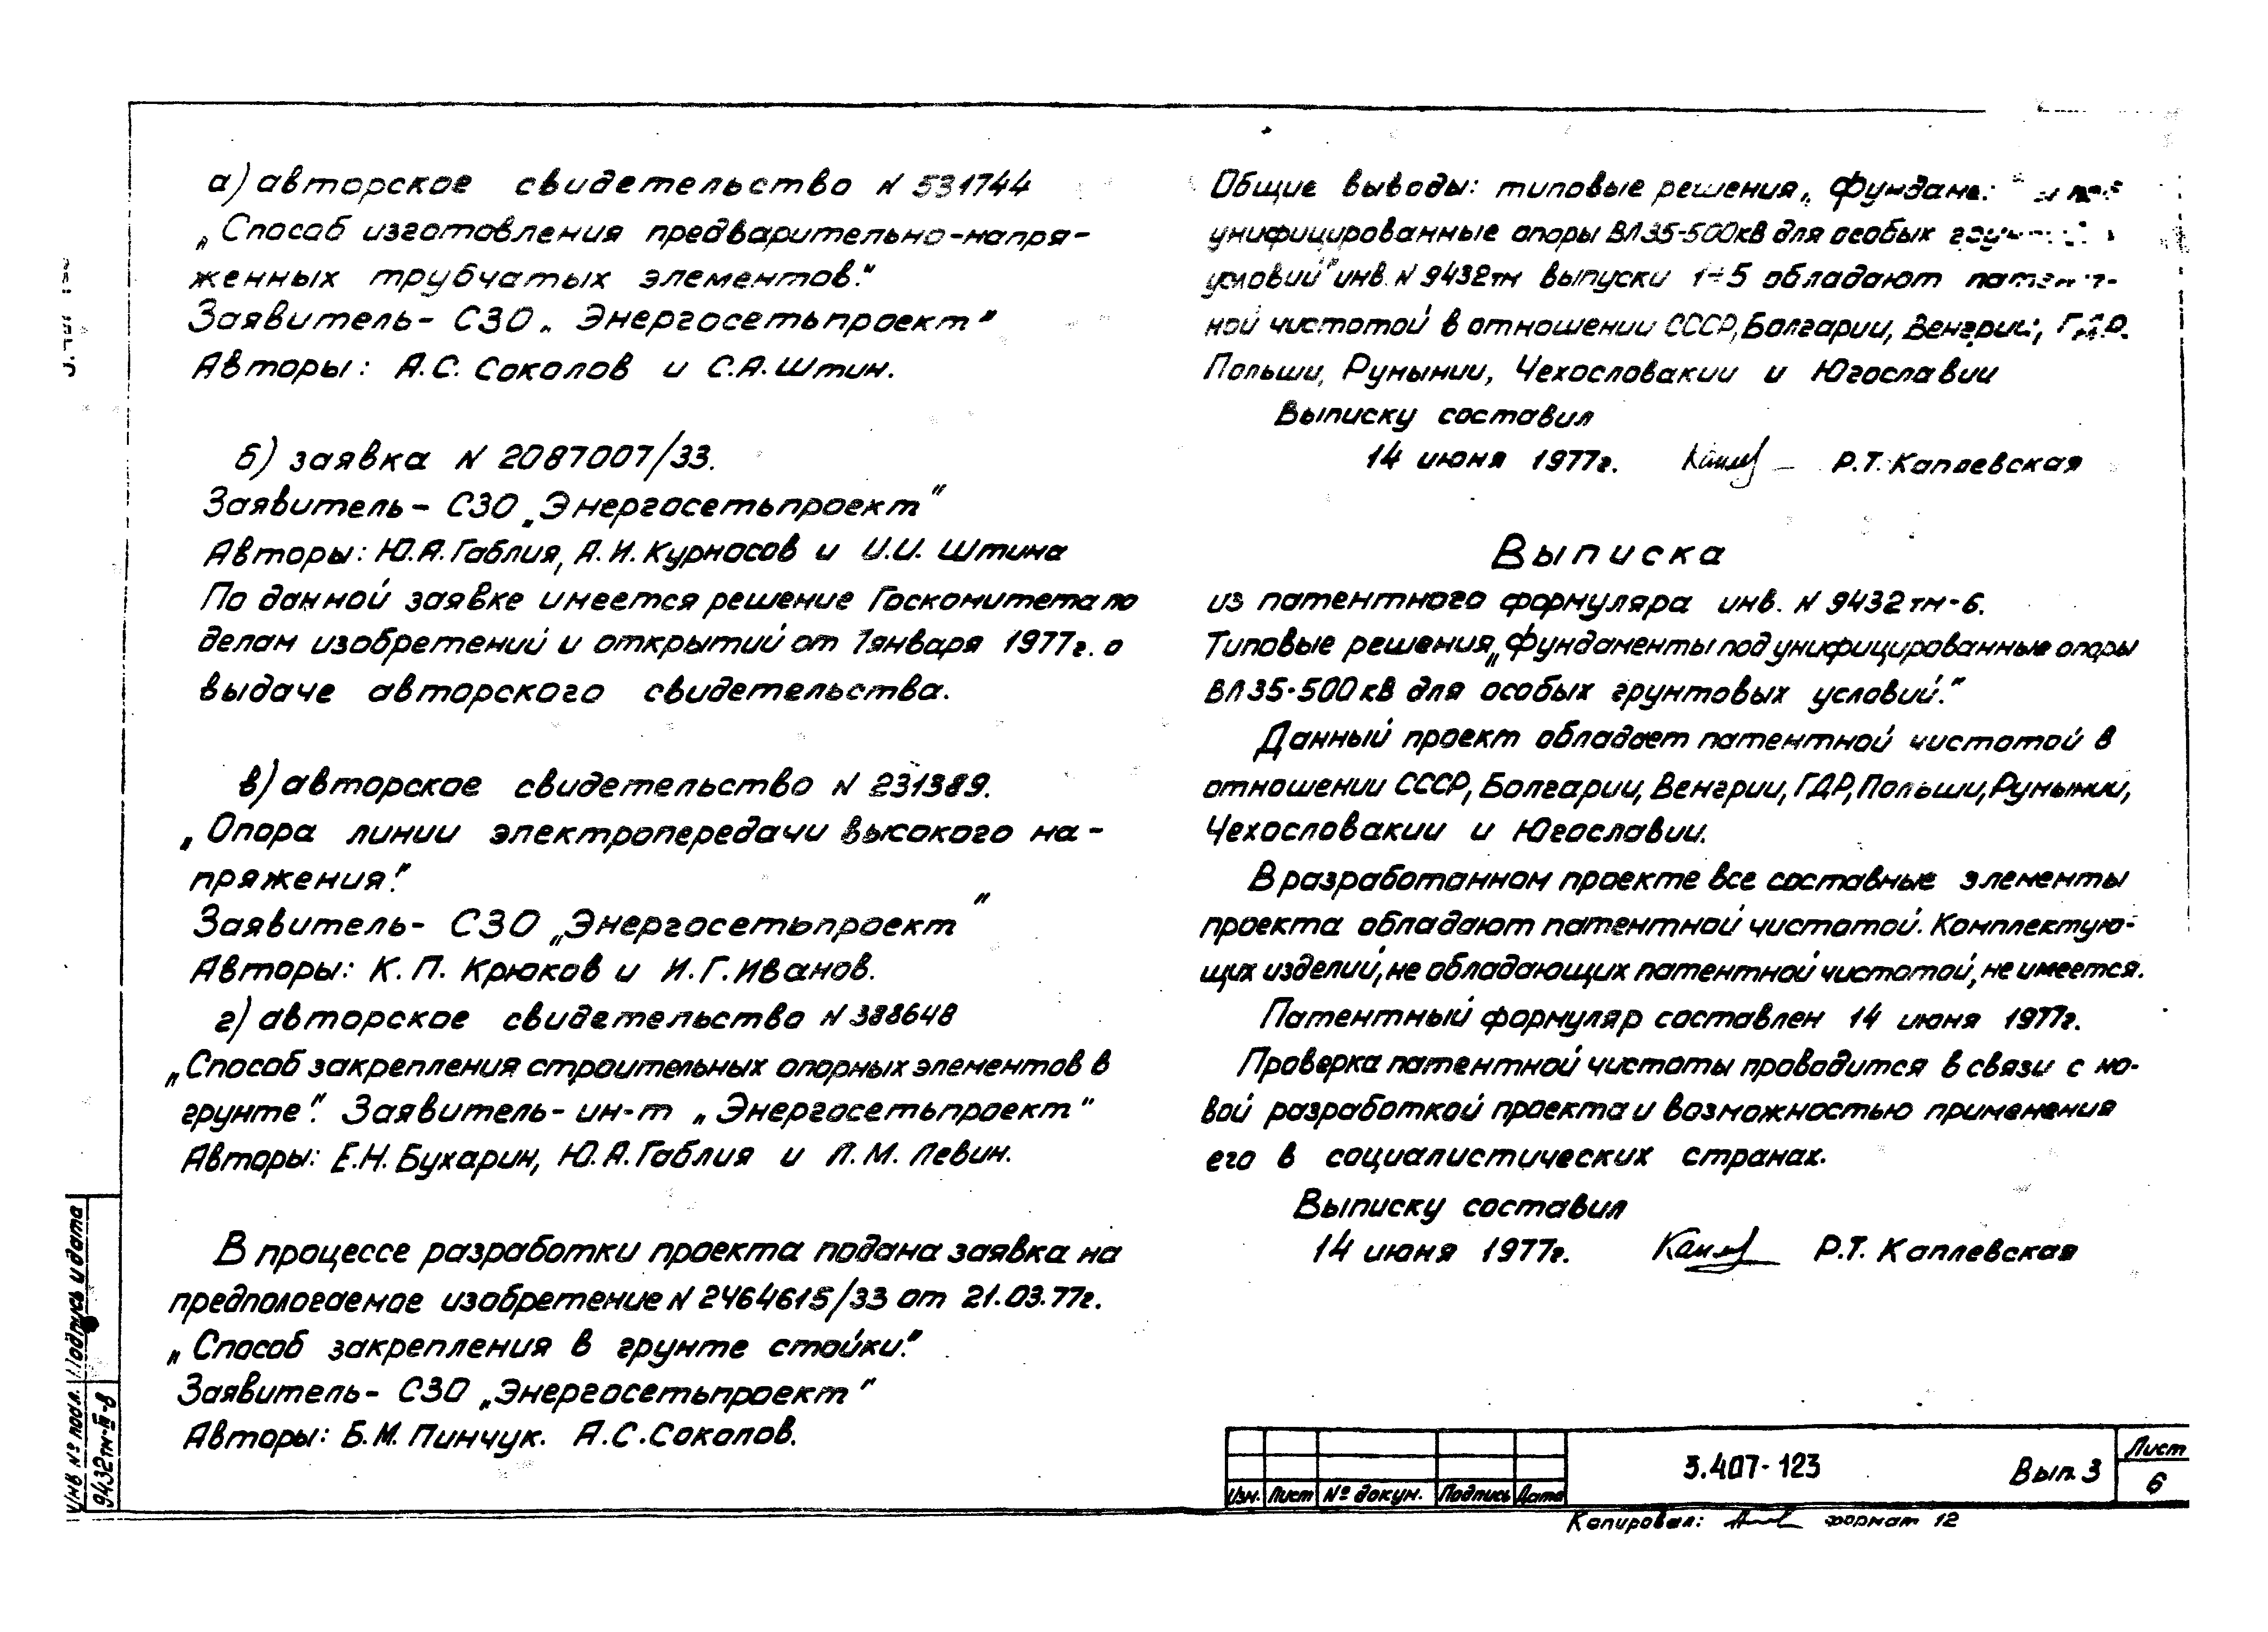 а) авторское свидетельство N 531744
„Способ изготовления предварительно-напря-
женных трубчатых элементов."
Заявитель- СЗО „Энергосетьпроект"
Авторы: А.С. Соколов и С.А. Штин.
б) заявка N 2087007/33.
Заявитель- СЗО „Энергосетьпроект"
Авторы: Ю.А. Габлия, А.И. Курносов и И.И. Штина
По данной заявке имеется решение Госкомитета по
делам изобретений и открытий от 7 января 1977г. о
выдаче авторского свидетельства.
в) авторское свидетельство N 231389.
„Опора линии электропередачи высокого на-
пряжения."
Заявитель- СЗО „Энергосетьпроект"
Авторы: К.П. Крюков и И.Г. Иванов.
г) авторское свидетельство N 388648
„Способ закрепления строительных опорных элементов в
грунте". Заявитель- ин-т „Энергосетьпроект"
Авторы: Е.Н. Бухарин, Ю.А. Габлия и Л.М. Левин.
В процессе разработки проекта подана заявка на
предпологаемое изобретение N 2464615/33 от 21.03.77г.
„Способ закрепления в грунте стойки."
Заявитель- СЗО „Энергосетьпроект"
Авторы: Б.М. Пинчук. А.С. Соколов.
Общие выводы: типовые решения „
унифицированные опоры ВЛ 35-500кВ для особых
условий" инв. N 9432тм выпуски 1÷5 обладают патент-
ной чистотой в отношении СССР, Болгарии, Венгрии, ГДР.
Польши, Румынии, Чехословакии и Югославии
Выписку составил
14 июня 1977г. Р.Т. Каплевская
Выписка
из патентного формуляра инв. N 9432тм-6.
Типовые решения „Фундаменты под унифицированные опоры
ВЛ 35-500кВ для особых грунтовых условий."
Данный проект обладает патентной чистотой в
отношении СССР, Болгарии, Венгрии, ГДР, Польши, Румынии,
Чехословакии и Югославии.
В разработанном проекте все составные элементы
проекта обладают патентной чистотой. Комплектую-
щих изделий, не обладающих патентной чистотой, не имеется.
Патентный формуляр составлен 14 июня 1977г.
Проверка патентной чистоты проводится в связи с но-
вой разработкой проекта и возможностью применения
его в социалистических странах.
Выписку составил
14 июня 1977г. Р.Т. Каплевская
Инв № подл. Подпись и дата
9432тм-III-8
Изм. Лист № докум. Подпись Дата
3.407-123 Вып. 3
Лист
6
Копировал: формат 12